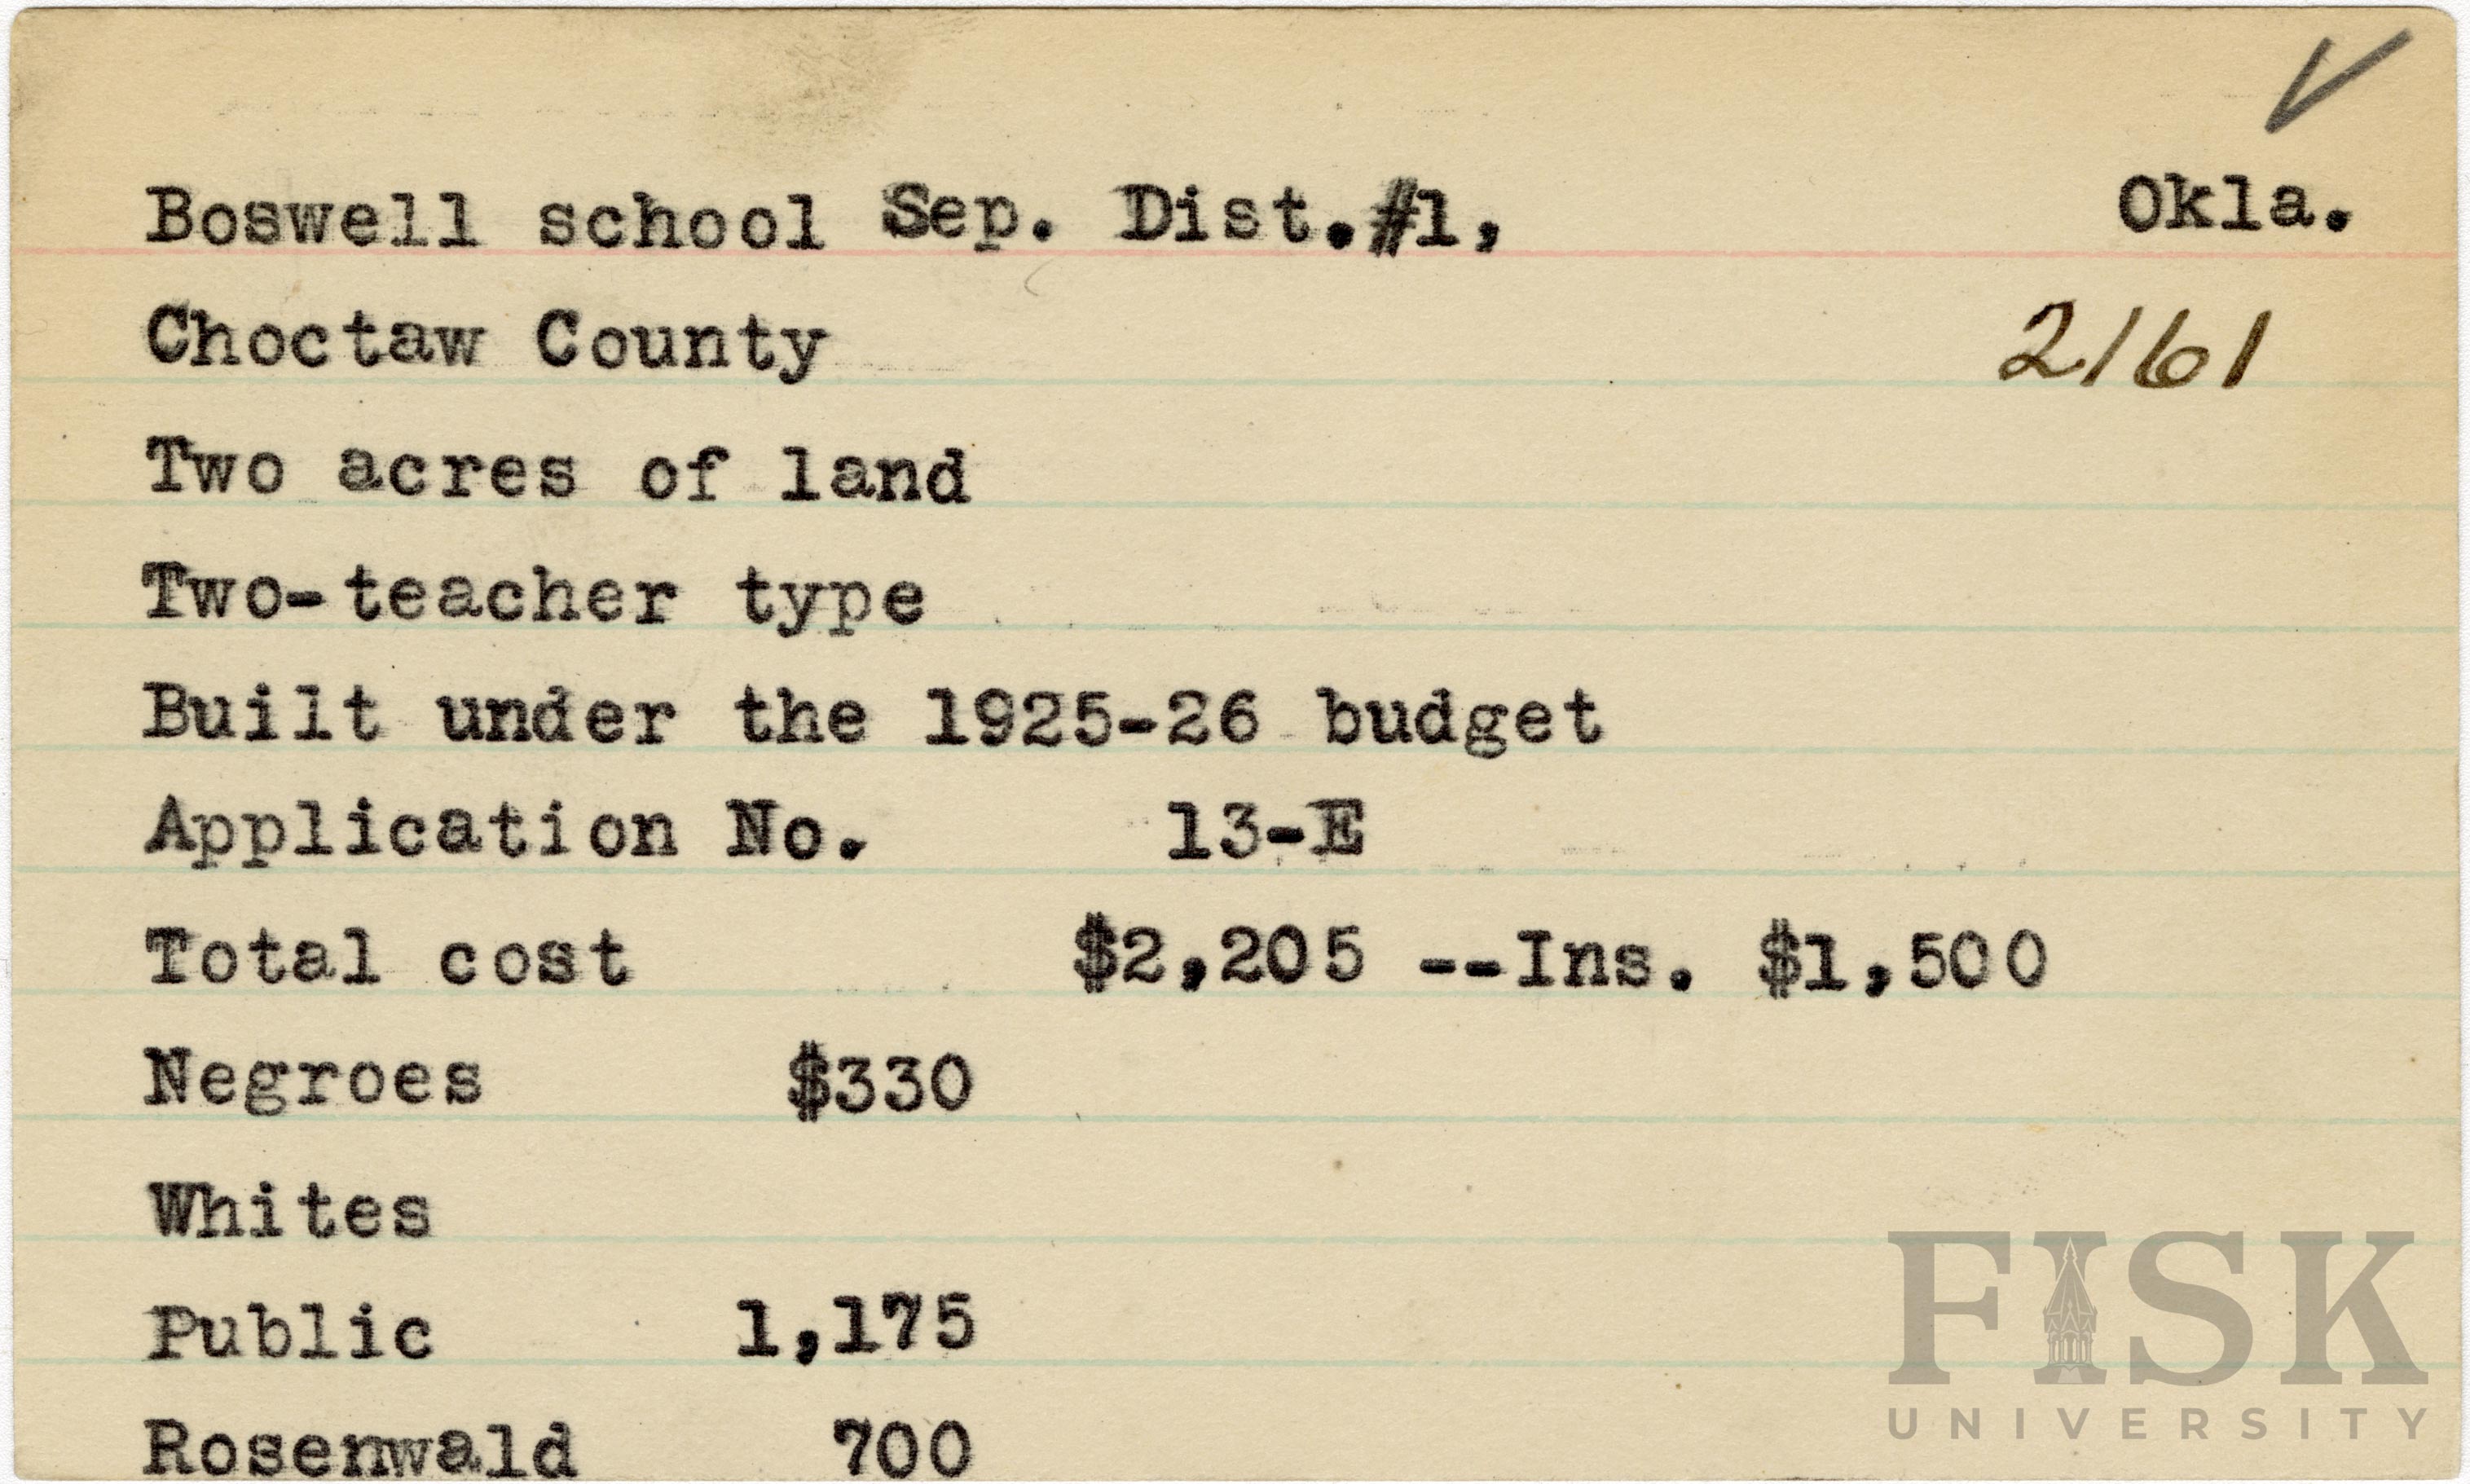 Boswell school Sep. Dist.#1, Okla.
Choctaw County 2161
Two acres of land
Two-teacher type
Built under the 1925-26 budget
Application No. 13-E
Total cost $2,205 --Ins. $1,500
Negroes $330
Whites
Public 1,175
Rosenwald 700
FISK
UNIVERSITY